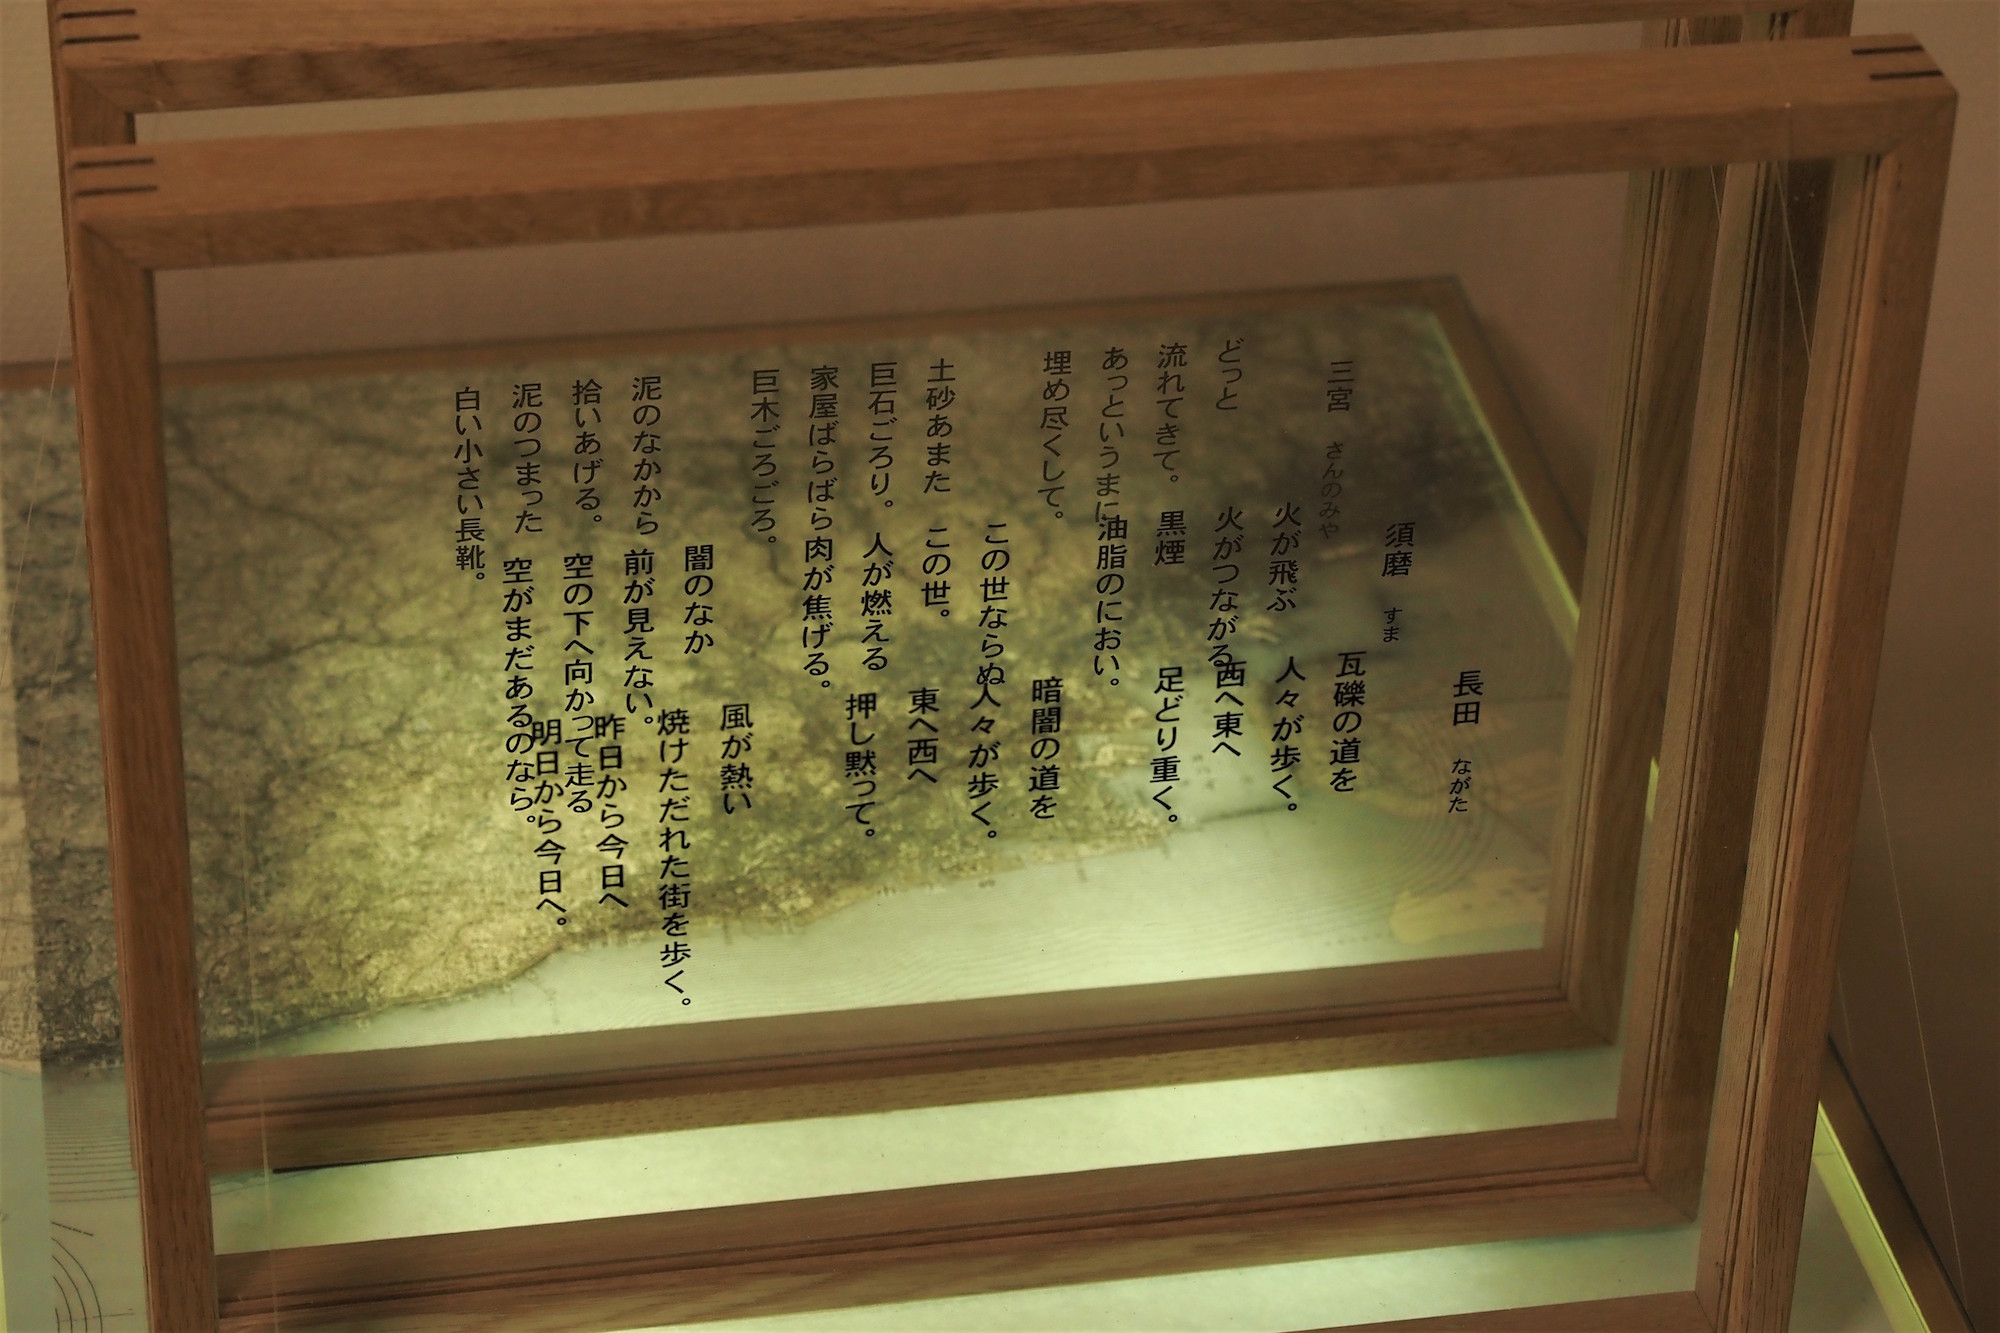 三宮 さんのみや
どっと
流れてきて。
あっというまに
埋め尽くして。
土砂あまた
巨石ごろり。
家屋ばらばら
巨木ごろごろ。
泥のなかから
拾いあげる。
泥のつまった
白い小さい長靴。
須磨 すま
火が飛ぶ
火がつながる
黒煙
油脂のにおい。
この世ならぬ
この世。
人が燃える
肉が焦げる。
闇のなか
前が見えない。
空の下へ向かって走る
空がまだあるのなら。
長田 ながた
瓦礫の道を
人々が歩く。
西へ東へ
足どり重く。
暗闇の道を
人々が歩く。
東へ西へ
押し黙って。
風が熱い
焼けただれた街を歩く。
昨日から今日へ
明日から今日へ。